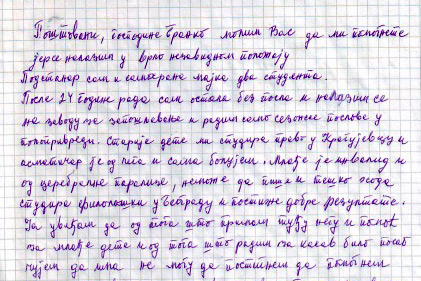 Поштовани, господине Бранко молим Вас да ми помогнете
јер се налазим у врло незавидном положају
Подстанар сам и самохрана мајка два студента.
После 24 године рада сам остала без посла и налазим се
на заводу за запошљавање и радим само сезонске послове у
пољопривреди. Старије дете ми студира право у Крагујевцу и
асматичар је од и сама болујем. Млађе је инвалид и
од церебралне парализе, неможе да пише и тешко хода
студира филолошки у Београду и постиже добре резултате.
Ја уређам да од тога што примам туђу негу и помоћ
за млађе дете и од тога што радим за какав било посао
не могу да постигнем да помогнем